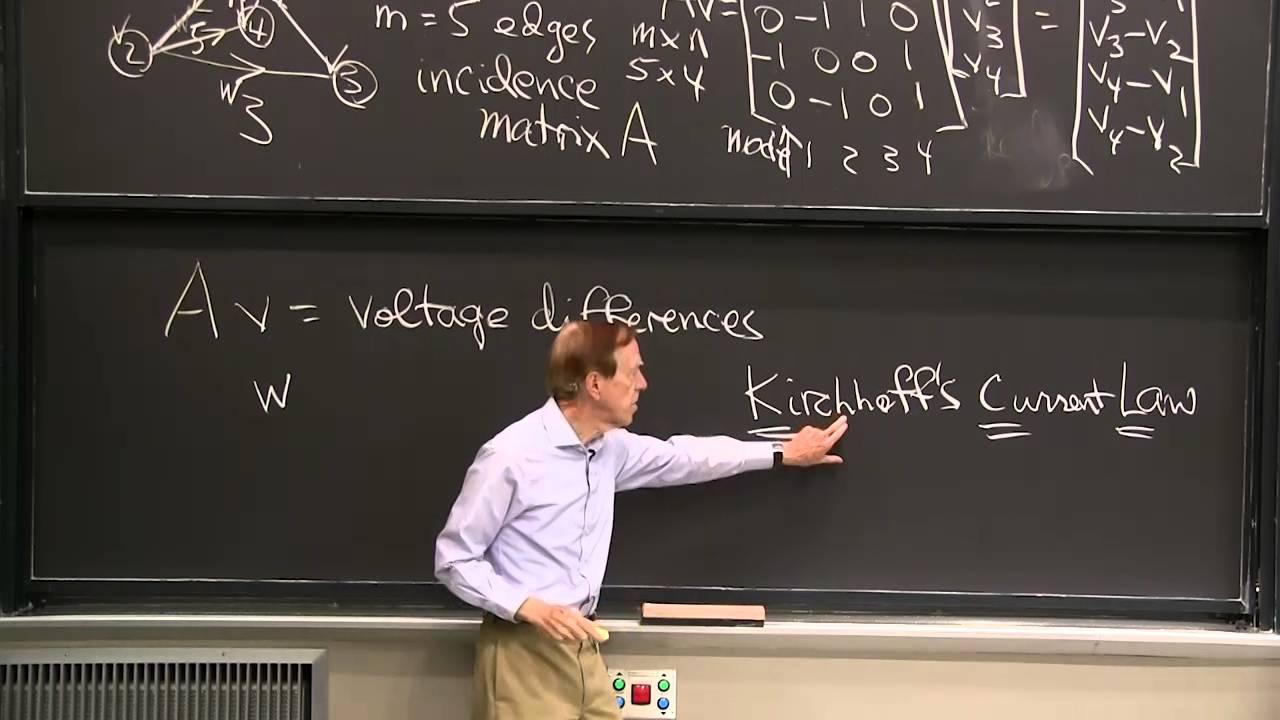 m = 5 edges
incidence
matrix A
2
5
4
W
3
3
AV=
m x n
5 x 4
0 -1 1 0
-1 0 0 1
0 -1 0 1
V3
V4
=
V3-V2
V4-V1
V4-V2
node 1 2 3 4
A v = voltage differences
w
Kirchhoff's Current Law